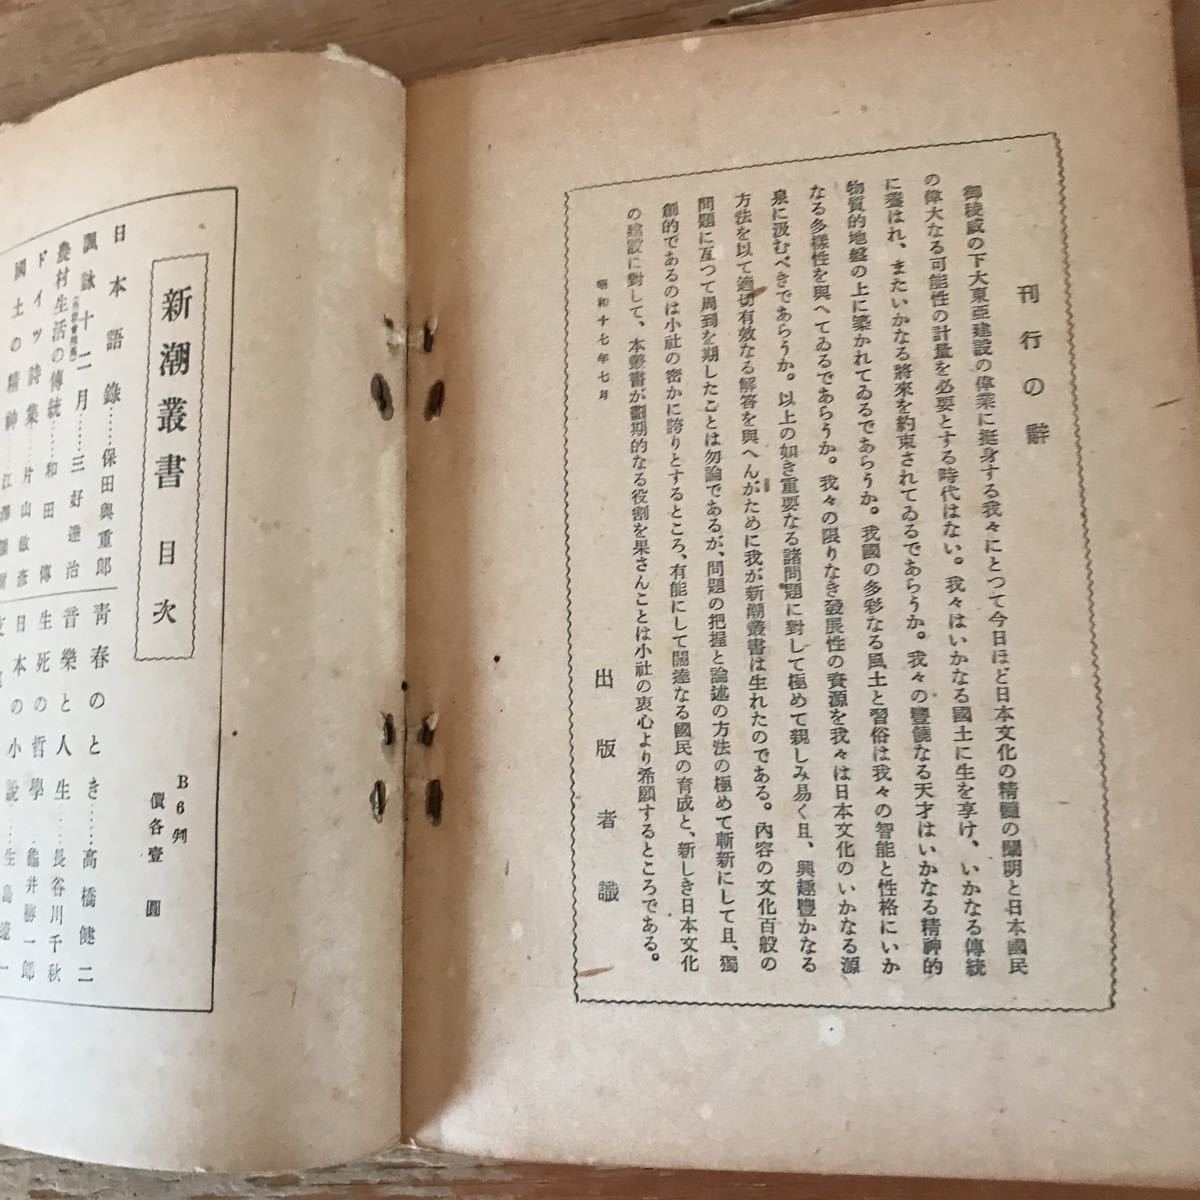 刊行の辭
御稜威の下大東亞建設の偉業に挺身する我々にとつて今日ほど日本文化の精髓の闡明と日本國民
の偉大なる可能性の計量を必要とする時代はない。我々はいかなる國土に生を享け、いかなる傳統
に養はれ、またいかなる將來を約束されてゐるであらうか。我々の豐饒なる天才はいかなる精神的
物質的地盤の上に築かれてゐるであらうか。我國の多彩なる風土と習俗は我々の智能と性格にいか
なる多樣性を與へてゐるであらうか。我々の限りなき發展性の資源を我々は日本文化のいかなる源
泉に汲むべきであらうか。以上の如き重要なる諸問題に對して極めて親しみ易く且、興趣豐かなる
方法を以て適切有效なる解答を與へんがために我が新潮叢書は生れたのである。內容の文化百般の
問題に亙つて周到を期したことは勿論であるが、問題の把握と論述の方法の極めて斬新にして且、獨
創的であるのは小社の密かに誇りとするところ、有能にして闊達なる國民の育成と、新しき日本文化
の建設に對して、本叢書が劃期的なる役割を果さんことは小社の衷心より希願するところである。
昭和十七年七月
出版者識
新潮叢書目次
B6判
價各壹圓
日本語錄……保田與重郎
諷詠十二月……三好達治
農村生活の傳統……和田傳
ドイツ詩集……片山敏彥
國土の精神……江澤
靑春のとき……高橋健二
音樂と人生……長谷川千秋
生死の哲學……龜井勝一郎
日本の小說……生島遼一